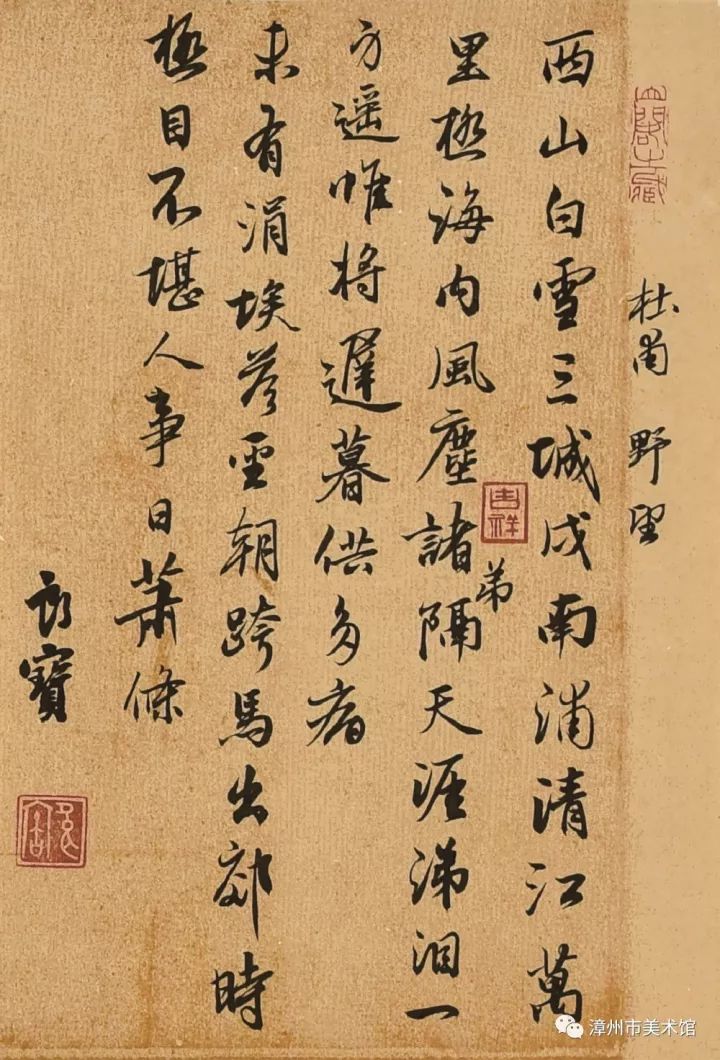 杜甫 野望
西山白雪三城戍南浦清江萬
里橋海内風塵諸隔天涯涕泪一
弟
吉祥
身遥惟将遲暮供多病
未有涓埃答聖朝跨馬出郊時
極目不堪人事日蕭條
寶
漳州市美术馆